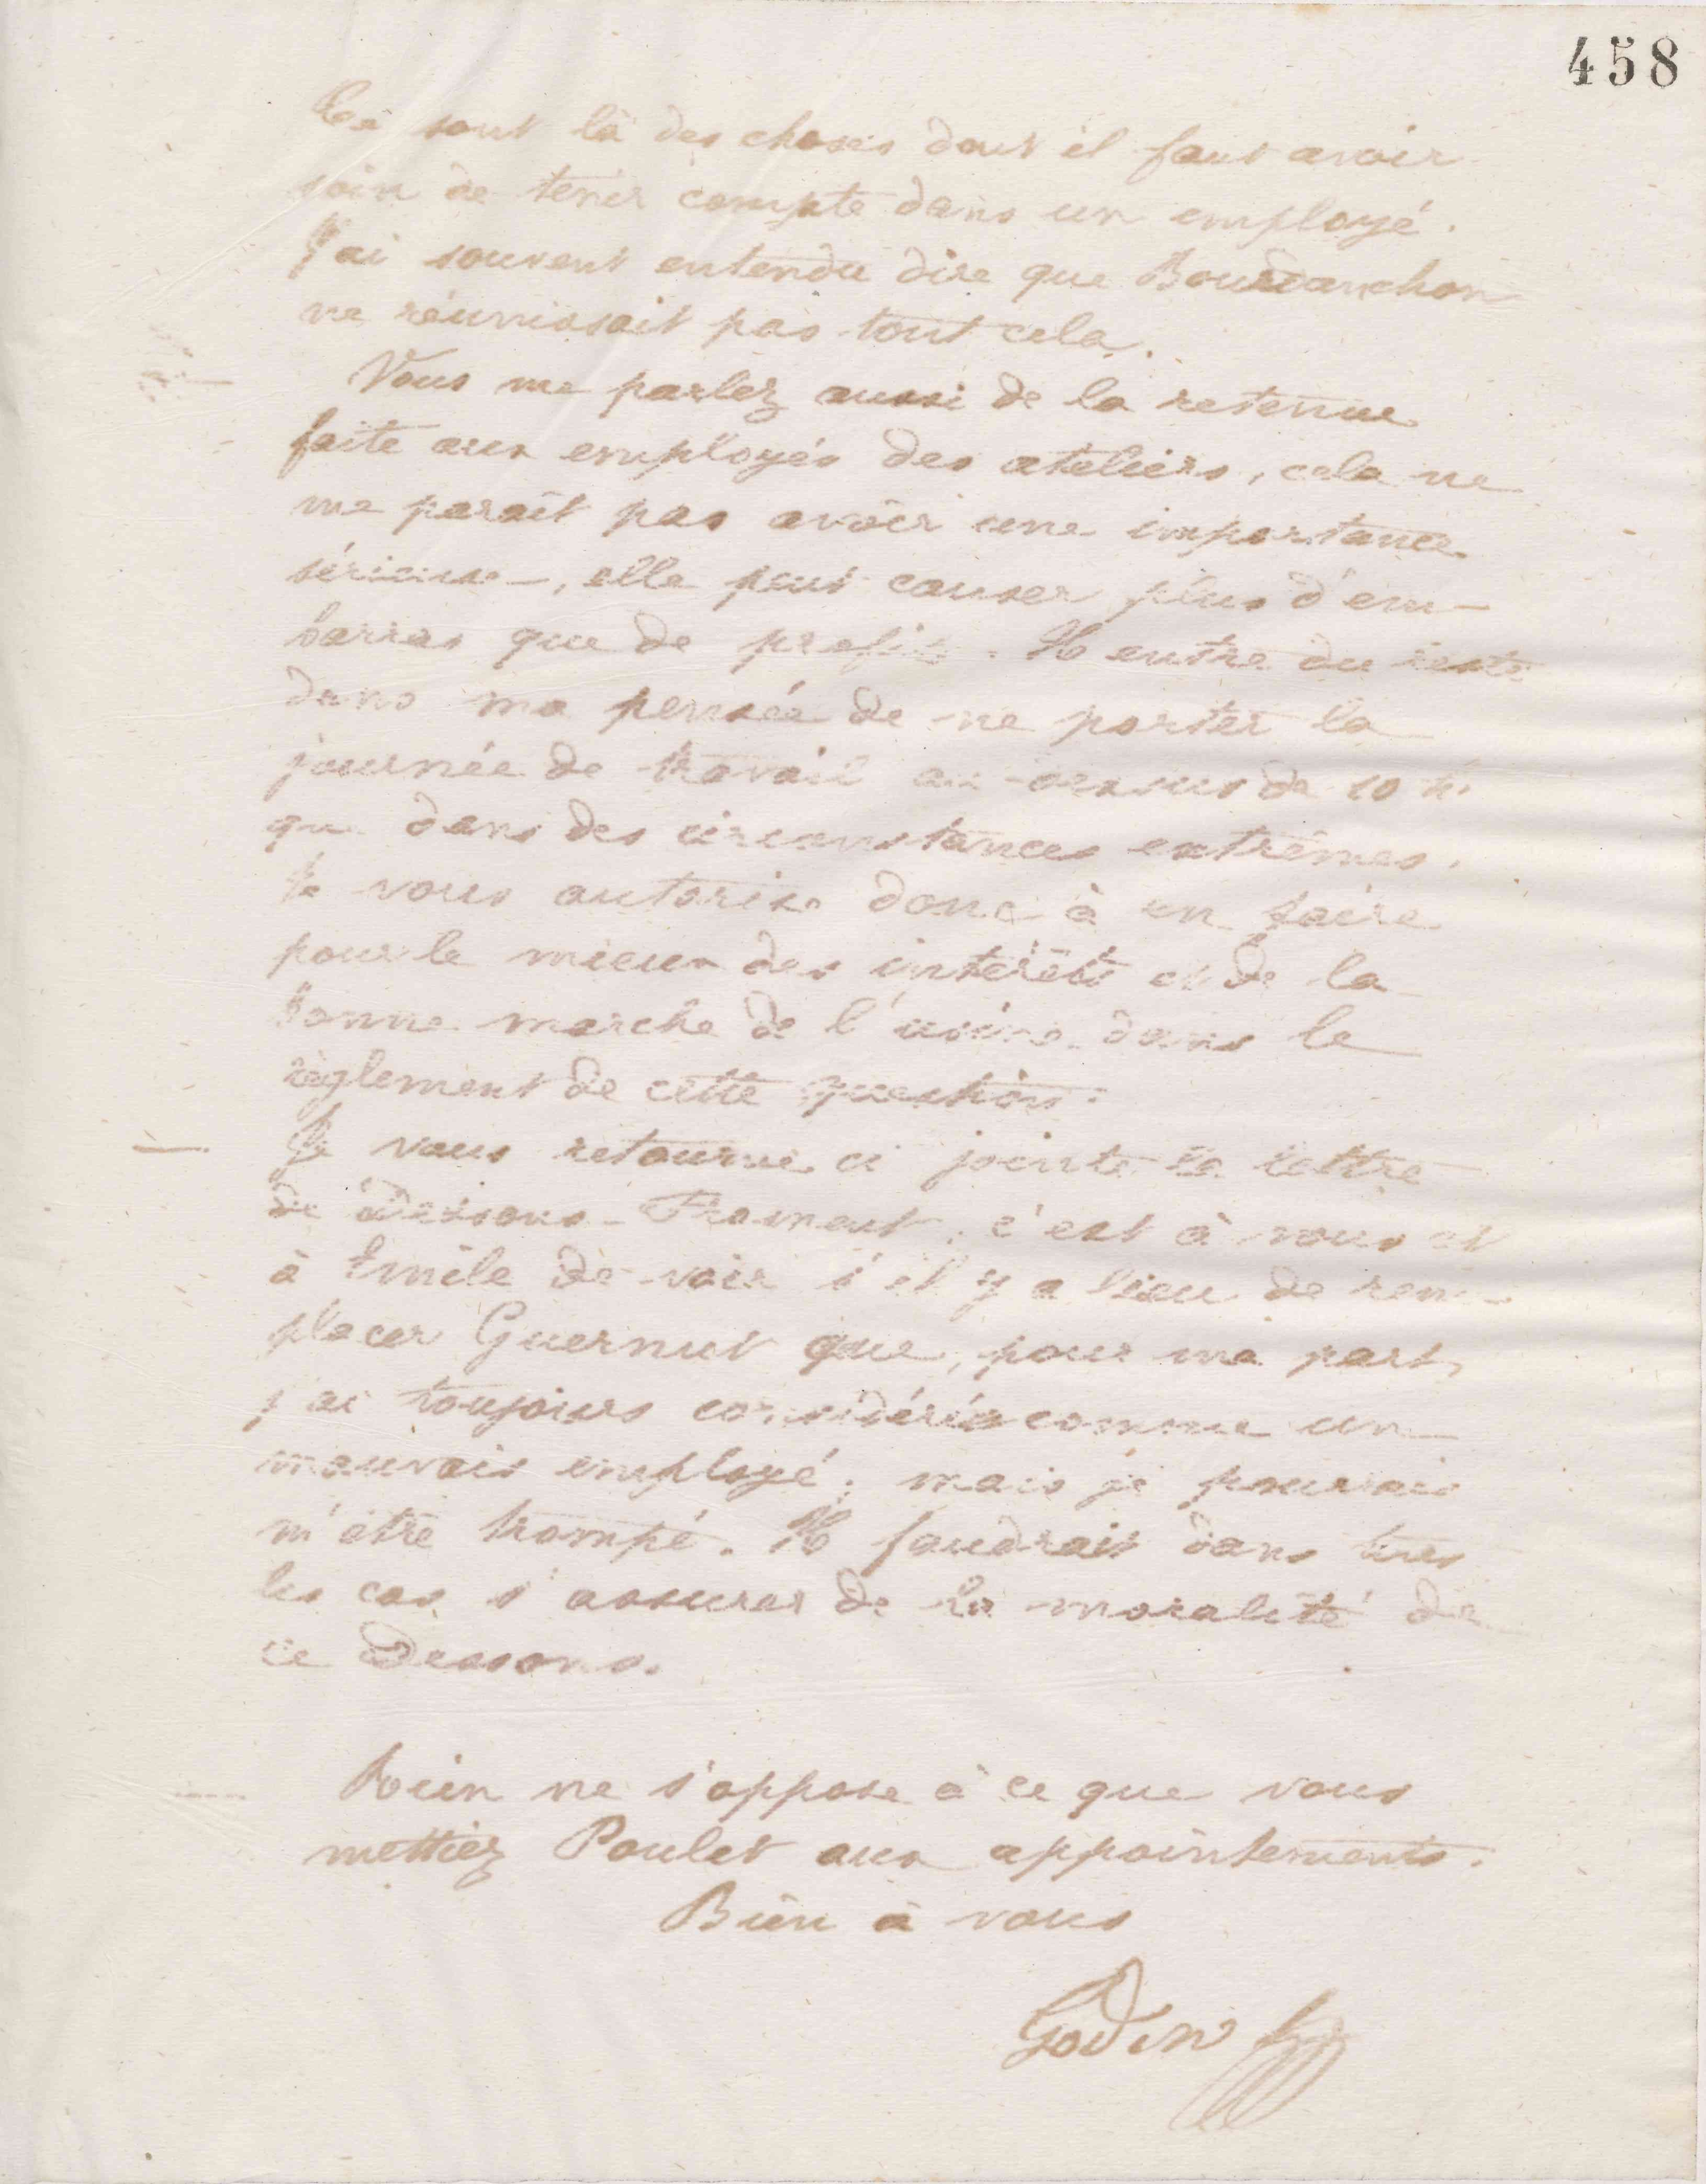 458
Ce sont là des choses dont il faut avoir
soin de tenir compte dans un employé.
J'ai souvent entendu dire que Bourdanchon
ne réunissait pas tout cela.
Vous me parlez aussi de la retenue
faite aux employés des ateliers, cela ne
me parait pas avoir une importance
sérieuse, elle peut causer plus d'em-
barras que de profits. Il entre du reste
dans ma pensée de ne porter la
journée de travail au-dessus de 10 h.
que dans des circonstances extrêmes.
Je vous autorise donc à en faire
pour le mieux des intérêts et de la
bonne marche de l'usine dans le
règlement de cette question.
Je vous retourne ci jointe la lettre
de Dessons-Froment, c'est à vous et
à Emile de voir s'il y a lieu de rem-
placer Guernut que, pour ma part,
j'ai toujours considéré comme un
mauvais employé; mais je pourrais
m'être trompé. Il faudrait dans tous
les cas s'assurer de la moralité de
ce Dessons.
Rien ne s'oppose à ce que vous
mettiez Poulet aux appointements.
Bien à vous
Godin